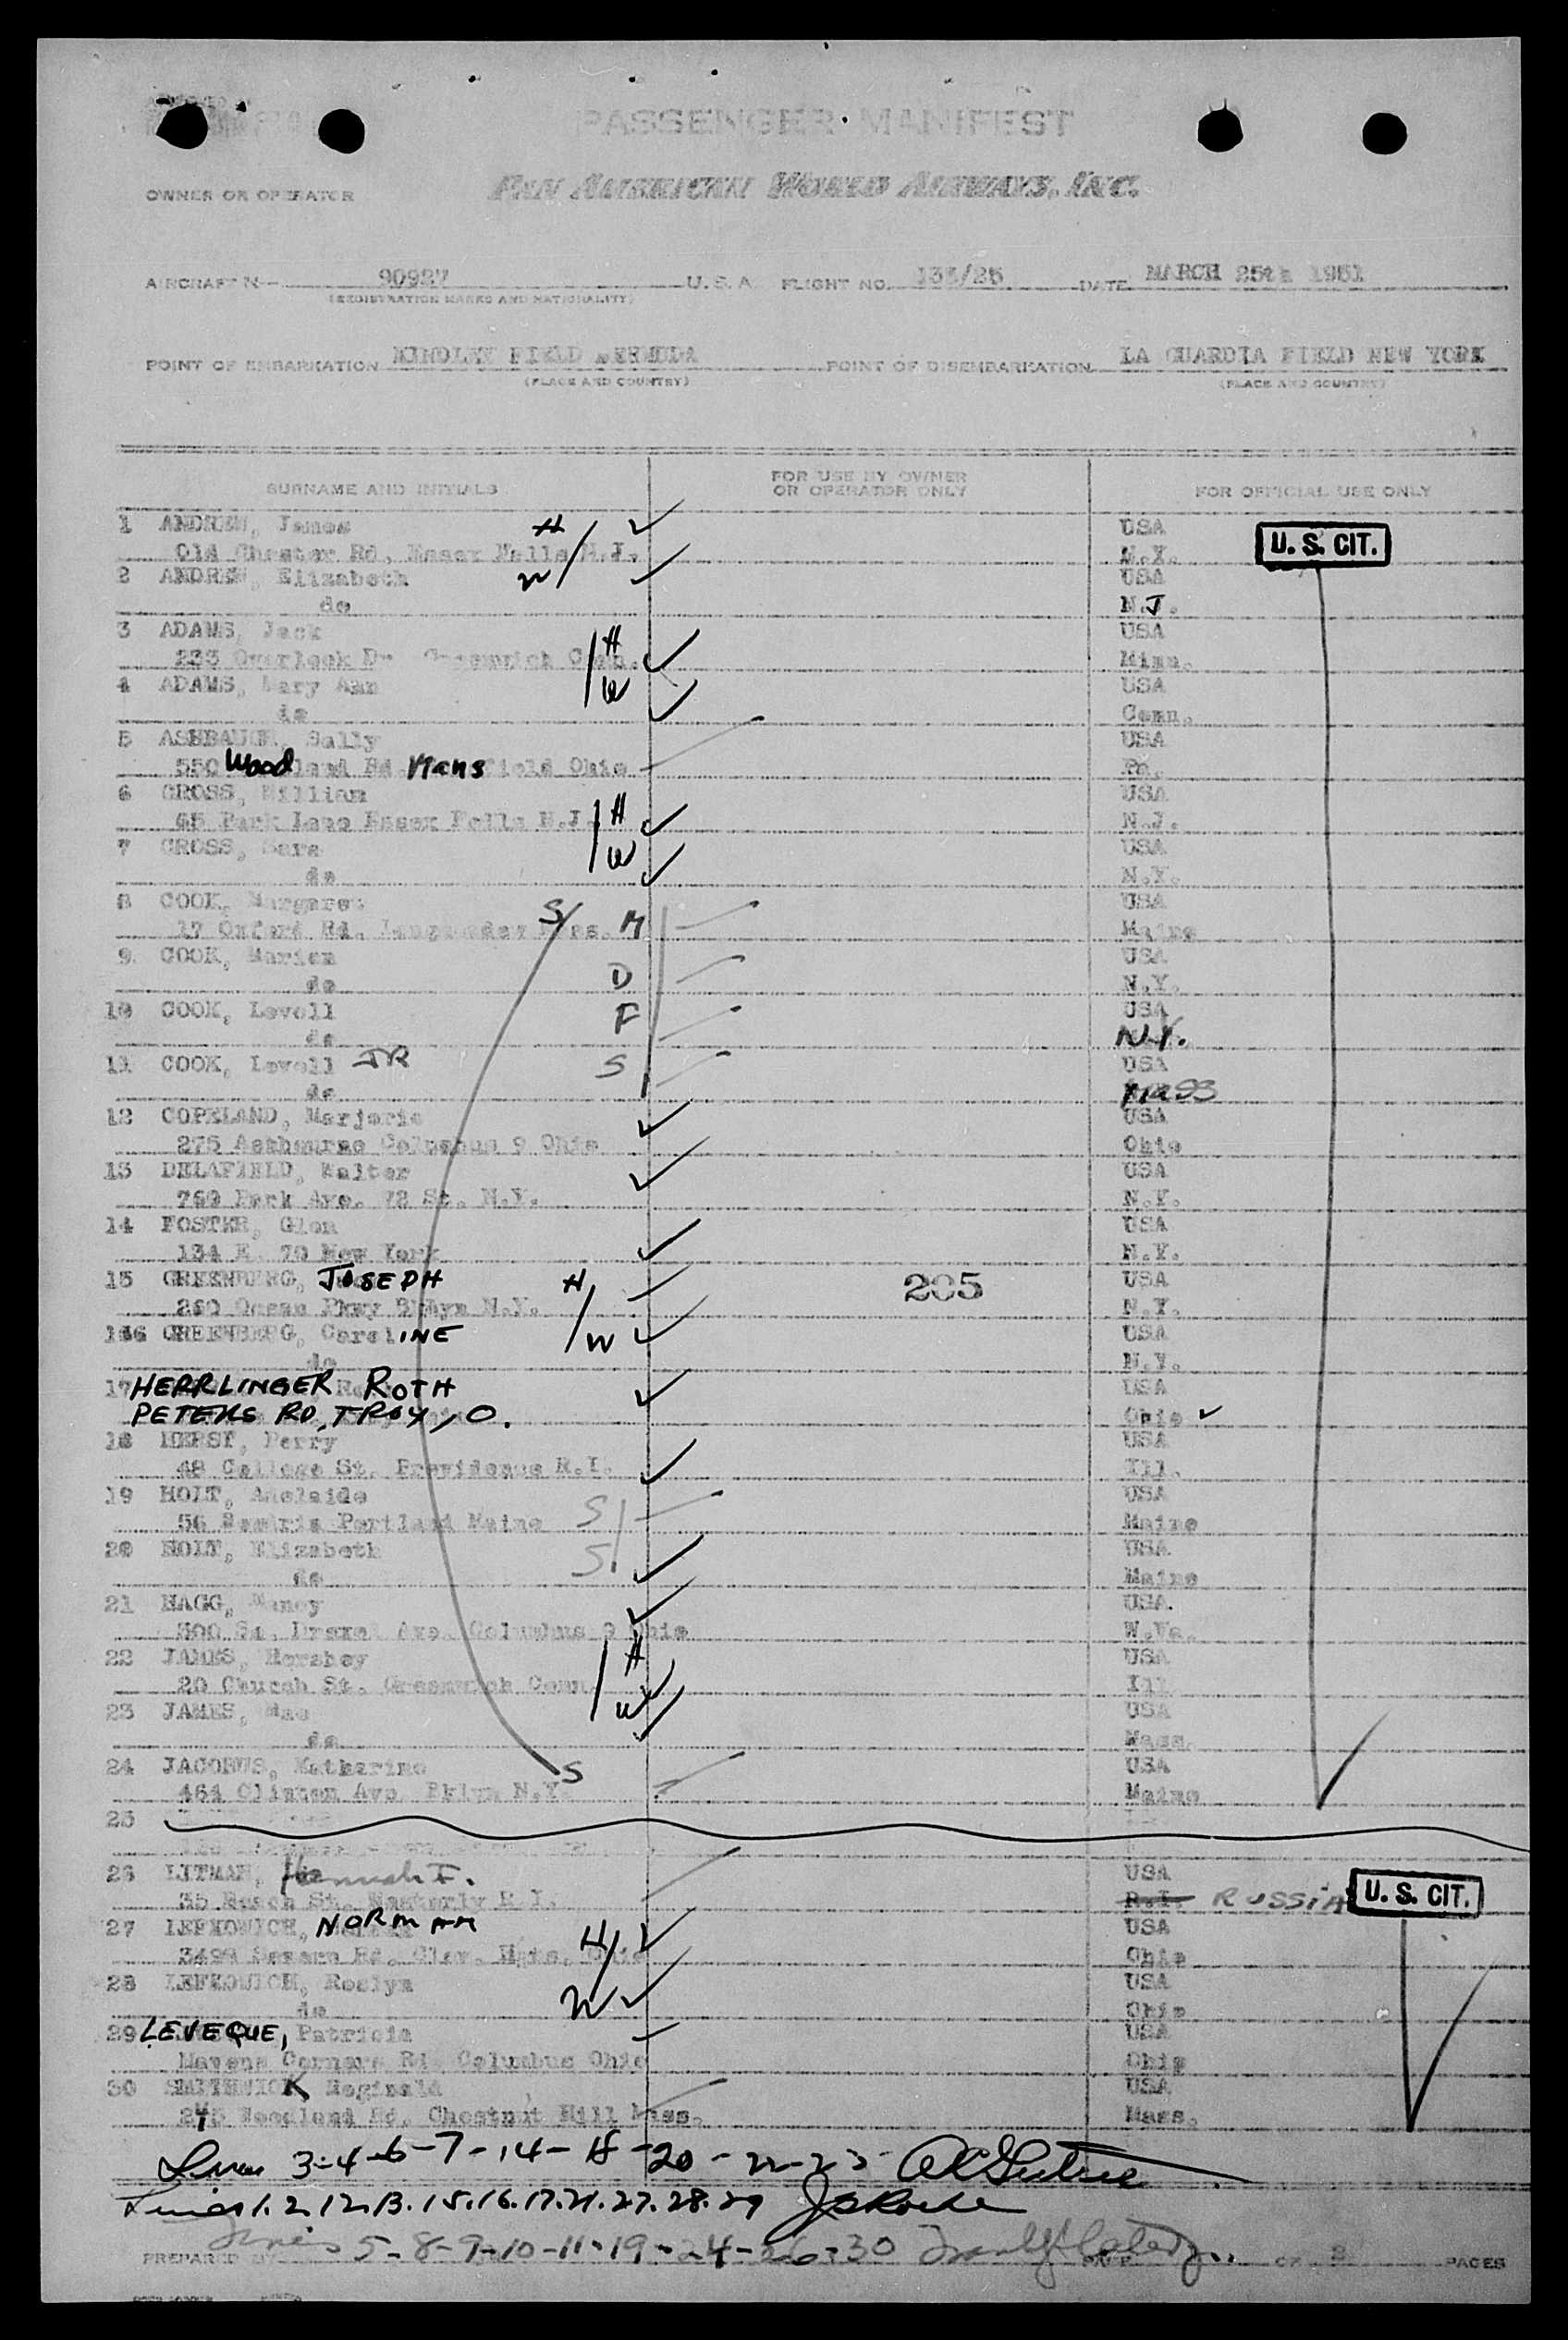 PASSENGER MANIFEST
OWNER OR OPERATOR PAN AMERICAN WORLD AIRWAYS, INC.
AIRCRAFT N— 90927 U.S.A. FLIGHT NO. 133/25 DATE MARCH 25th 1951
(REGISTRATION MARKS AND NATIONALITY)
POINT OF EMBARKATION KINDLEY FIELD BERMUDA POINT OF DISEMBARKATION LA GUARDIA FIELD NEW YORK
(PLACE AND COUNTRY) (PLACE AND COUNTRY)
SURNAME AND INITIALS FOR USE BY OWNER OR OPERATOR ONLY FOR OFFICIAL USE ONLY
1 ANDREW, James H ✓ USA
Chester Rd. Essex Fells N.J. N.Y. U.S. CIT.
2 ANDREW, Elizabeth W ✓ USA
do N.J.
3 ADAMS, Jack H ✓ USA
233 Overlook Dr Greenwich Conn. Minn.
4 ADAMS, Mary Ann W ✓ USA
do Conn.
5 ASHBAUGH, Sally USA
550 Woodland Rd. Mansfield Ohio Pa.
6 GROSS, William H ✓ USA
65 Park Lane Essex Fells N.J. N.J.
7 GROSS, Sara W ✓ USA
do N.Y.
8 COOK, Margaret S USA
17 Oxford Rd. Longmeadow Mass. M Maine
9 COOK, Marion USA
do D N.Y.
10 COOK, Lovell F USA
do N.Y.
11 COOK, Lovell JR S USA
do Mass
12 COPELAND, Marjorie ✓ USA
275 Ashbourne Columbus 9 Ohio Ohio
13 DELAFIELD, Walter ✓ USA
Park Ave. 72 St. N.Y. N.Y.
14 FOSTER, Glen ✓ USA
134 E. 70 New York N.Y.
15 GREENBERG, JOSEPH H ✓ 205 USA
260 Ocean Pkwy Bklyn N.Y. N.Y.
16 GREENBERG, CarolINE W ✓ USA
do N.Y.
17 HERRLINGER ROTH ✓ USA
PETERS RD, TROY, O. Ohio ✓
18 HERST, Perry USA
48 College St. Providence R.I. ✓ Ill.
19 HOLT, Adelaide S USA
56 Portland Maine Maine
20 HOLT, Elizabeth S ✓ USA
do Maine
21 HAGG, Nancy ✓ USA
So. Drexel Ave. Columbus 9 Ohio W.Va.
22 JAMES, Hershey H USA
20 Church St. Greenwich Conn. ✓ Ill
23 JAMES, Mae W ✓ USA
do Mass.
24 JACOBUS, Katharine S USA
464 Clinton Ave. Bklyn N.Y. Maine
25
26 LITMAN, Hannah F. USA
35 Beach St. Westerly R.I. R.I. RUSSIA U.S. CIT.
27 LEFKOWICH, NORMAN H ✓ USA
3499 Severn Rd. Clev. Hgts. Ohio Ohio
28 LEFKOWICH, Roslyn W ✓ USA
do Ohio
29 LEVEQUE, Patricia USA
Havens Corners Rd. Columbus Ohio Ohio
30 SMITHWICK, Reginald USA
Woodland Rd. Chestnut Hill Mass. Mass.
Lines 3-4-6-7-14-18-20-22-23
Lines 1.2.12.13.15.16.17.21.27.28.29
Lines 5-8-9-10-11-19-24-26-30
PREPARED BY PAGE OF 3 PAGES